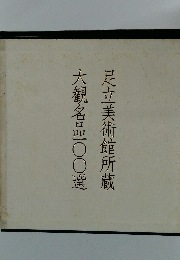 足立美術館所蔵
大観名品一〇〇選